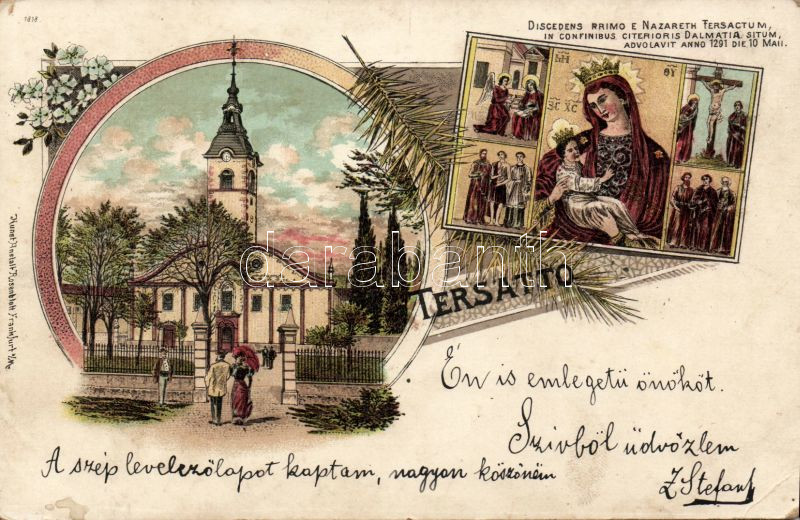 1818.
DISCEDENS RRIMO E NAZARETH TERSACTUM,
IN CONFINIBUS CITERIORIS DALMATIA SITUM,
ADVOLAVIT ANNO 1291 DIE 10 MAII.
TERSATTO
darabanth
Kunst-Anstalt Rosenblatt Frankfurt a/M.
Én is emlegetü önököt.
Szivből üdvözlem
A szép levelezőlapot kaptam, nagyon köszönöm
Z Stefani